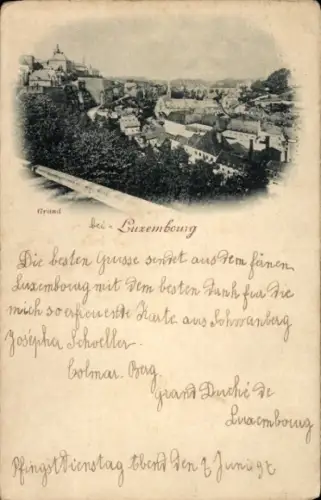 Grund
bei Luxembourg
Die besten Grüsse sendet aus dem fernen
Luxembourg mit dem besten Dank für die
mich so erfreuente Karte aus Schwanberg
Josépha Schoeller.
Colmar. Berg.
Grand Duché de
Luxembourg
Pfingstdienstag Abend den 7 Juni 97